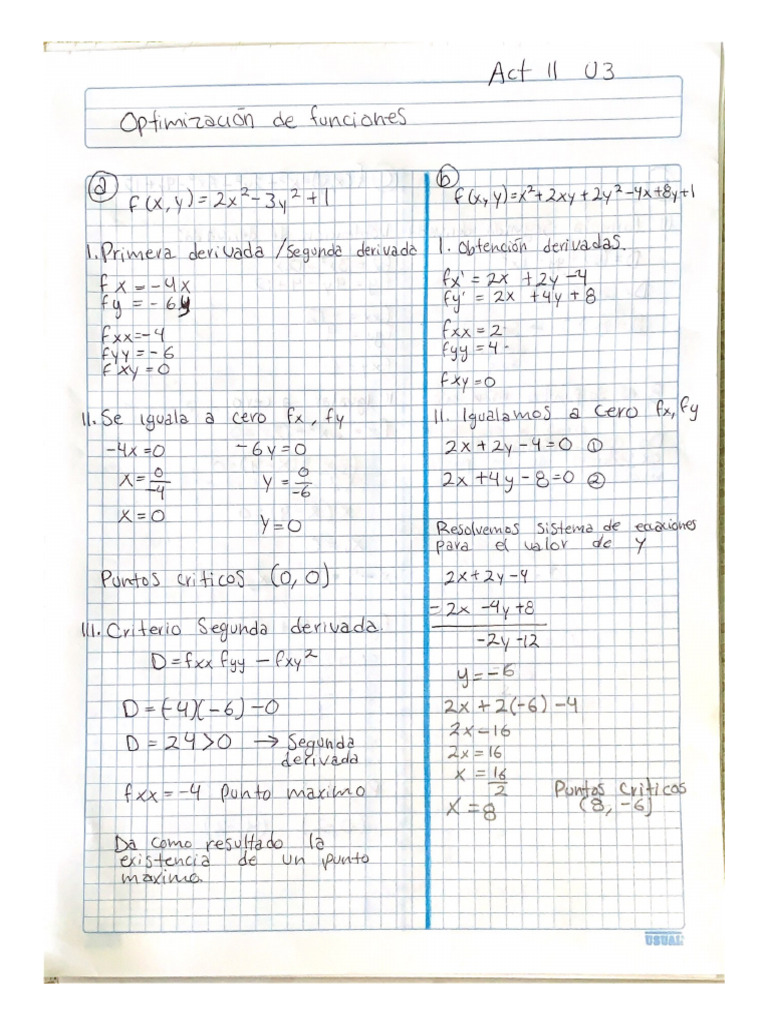 Act 11 U3
Optimización de funciones
a
f(x,y)=2x²-3y²+1
I. Primera derivada /Segunda derivada
fx=-4x
fy=-6y
fxx=-4
fyy=-6
fxy=0
II. Se iguala a cero fx, fy
-4x=0 -6y=0
x=0/-4 y=0/-6
x=0 y=0
Puntos criticos (0,0)
III. Criterio Segunda derivada.
D=fxx fyy - fxy²
D=(-4)(-6)-0
D=24>0 → Segunda
derivada
fxx=-4 punto maximo
Da como resultado la
existencia de un punto
maximo.
b
f(x,y)=x²+2xy+2y²-4x+8y+1
I. Obtención derivadas.
fx'=2x+2y-4
fy'=2x+4y+8
fxx=2
fyy=4
fxy=0
II. Igualamos a cero fx, fy
2x+2y-4=0 ①
2x+4y-8=0 ②
Resolvemos sistema de ecuaciones
para el valor de y
2x+2y-4
=2x-4y+8
-2y-12
y=-6
2x+2(-6)-4
2x-16
2x=16
x=16/2 Puntos Criticos
x=8 (8,-6)
USUAL